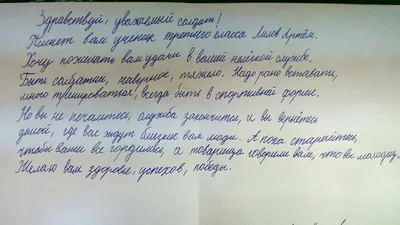 Здравствуй, уважаемый солдат!
Пишет вам ученик третьего класса Лилов Артём.
Хочу пожелать вам удачи в вашей нелёгкой службе.
Быть солдатом, наверное, тяжело. Надо рано вставать,
много тренироваться, всегда быть в спортивной форме.
Но вы не печальтесь, служба закончится, и вы вернётесь
домой, где вас ждут близкие вам люди. А пока старайтесь,
чтобы вами все гордились, а товарищи говорили вам, что вы молодец.
Желаю вам здоровья, успехов, победы.